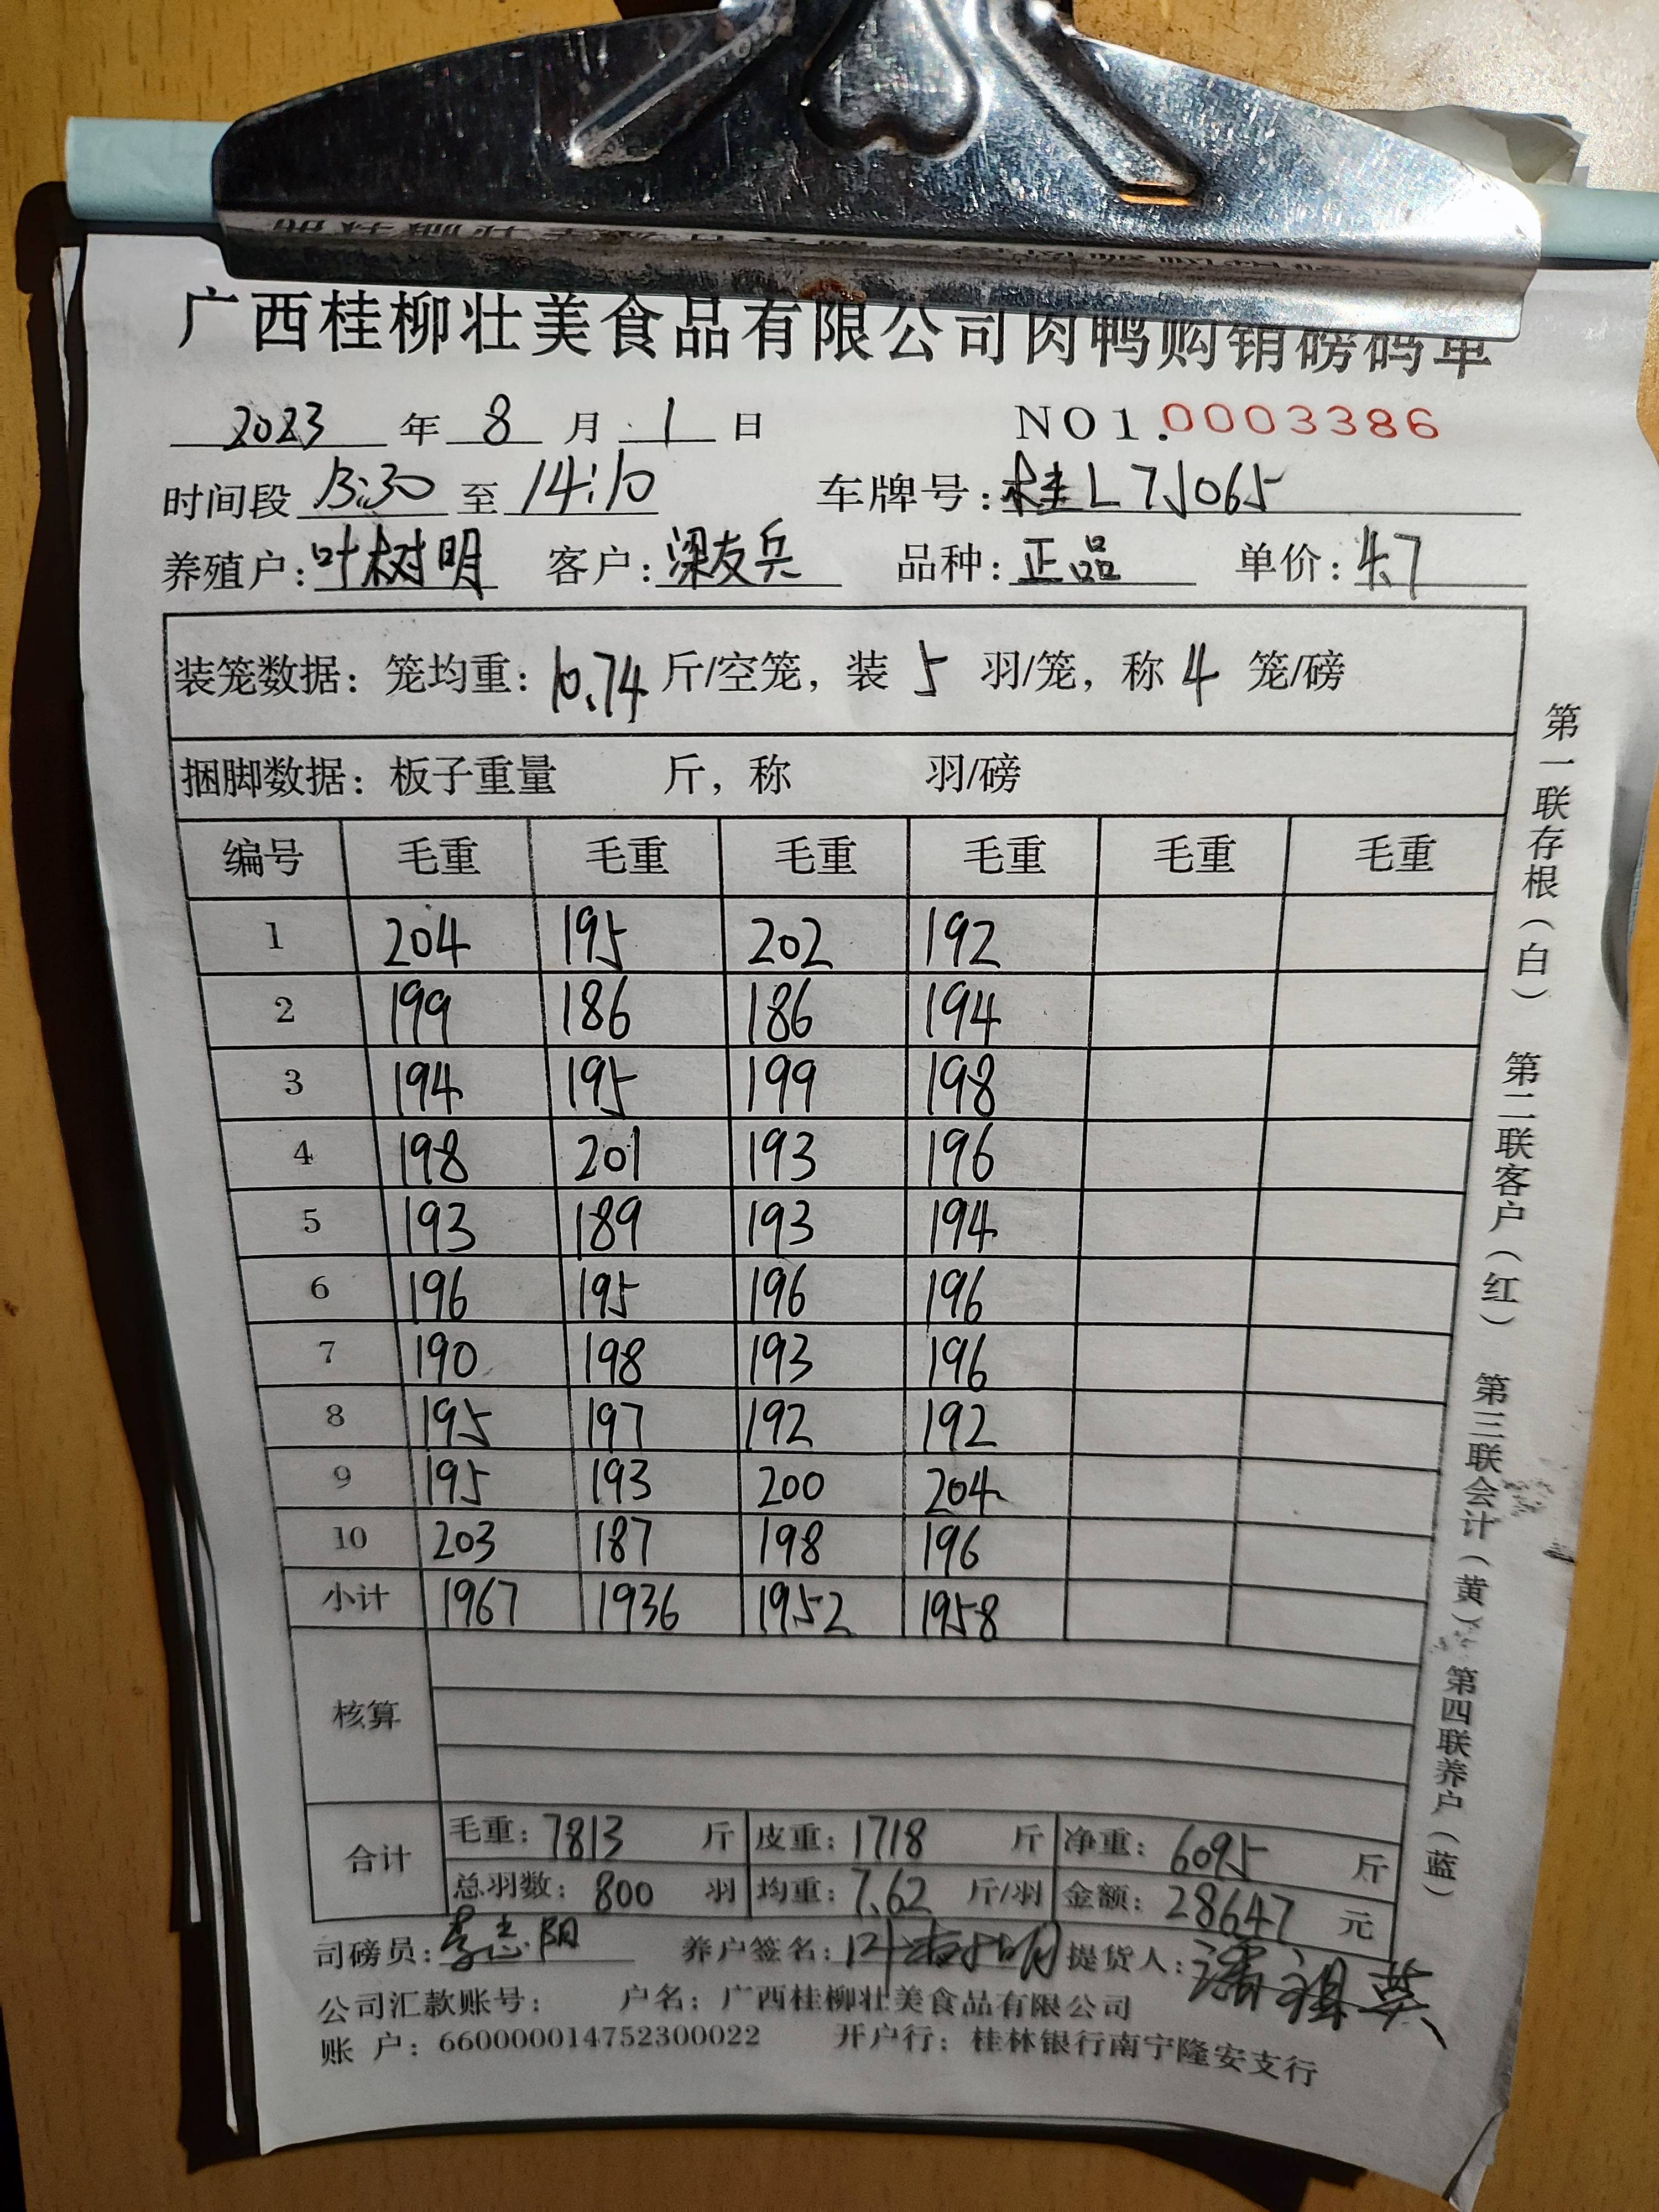 广西桂柳壮美食品有限公司肉鸭购销磅码单
2023 年 8 月 1 日 NO1.0003386
时间段 13:30 至 14:10 车牌号:桂L7J065
养殖户:叶树明 客户:梁友兵 品种:正品 单价:4.7
装笼数据:笼均重:10.74 斤/空笼,装 5 羽/笼,称 4 笼/磅
捆脚数据:板子重量 斤,称 羽/磅
编号 毛重 毛重 毛重 毛重 毛重 毛重
1 204 195 202 192
2 199 186 186 194
3 194 195 199 198
4 198 201 193 196
5 193 189 193 194
6 196 195 196 196
7 190 198 193 196
8 195 197 192 192
9 195 193 200 204
10 203 187 198 196
小计 1967 1936 1952 1958
核算
合计 毛重:7813 斤 皮重:1718 斤 净重:6095 斤
总羽数:800 羽 均重:7.62 斤/羽 金额:28647 元
司磅员: 养户签名:叶树明 提货人:
公司汇款账号: 户名:广西桂柳壮美食品有限公司
账 户:660000014752300022 开户行:桂林银行南宁隆安支行
第一联存根(白) 第二联客户(红) 第三联会计(黄) 第四联养户(蓝)